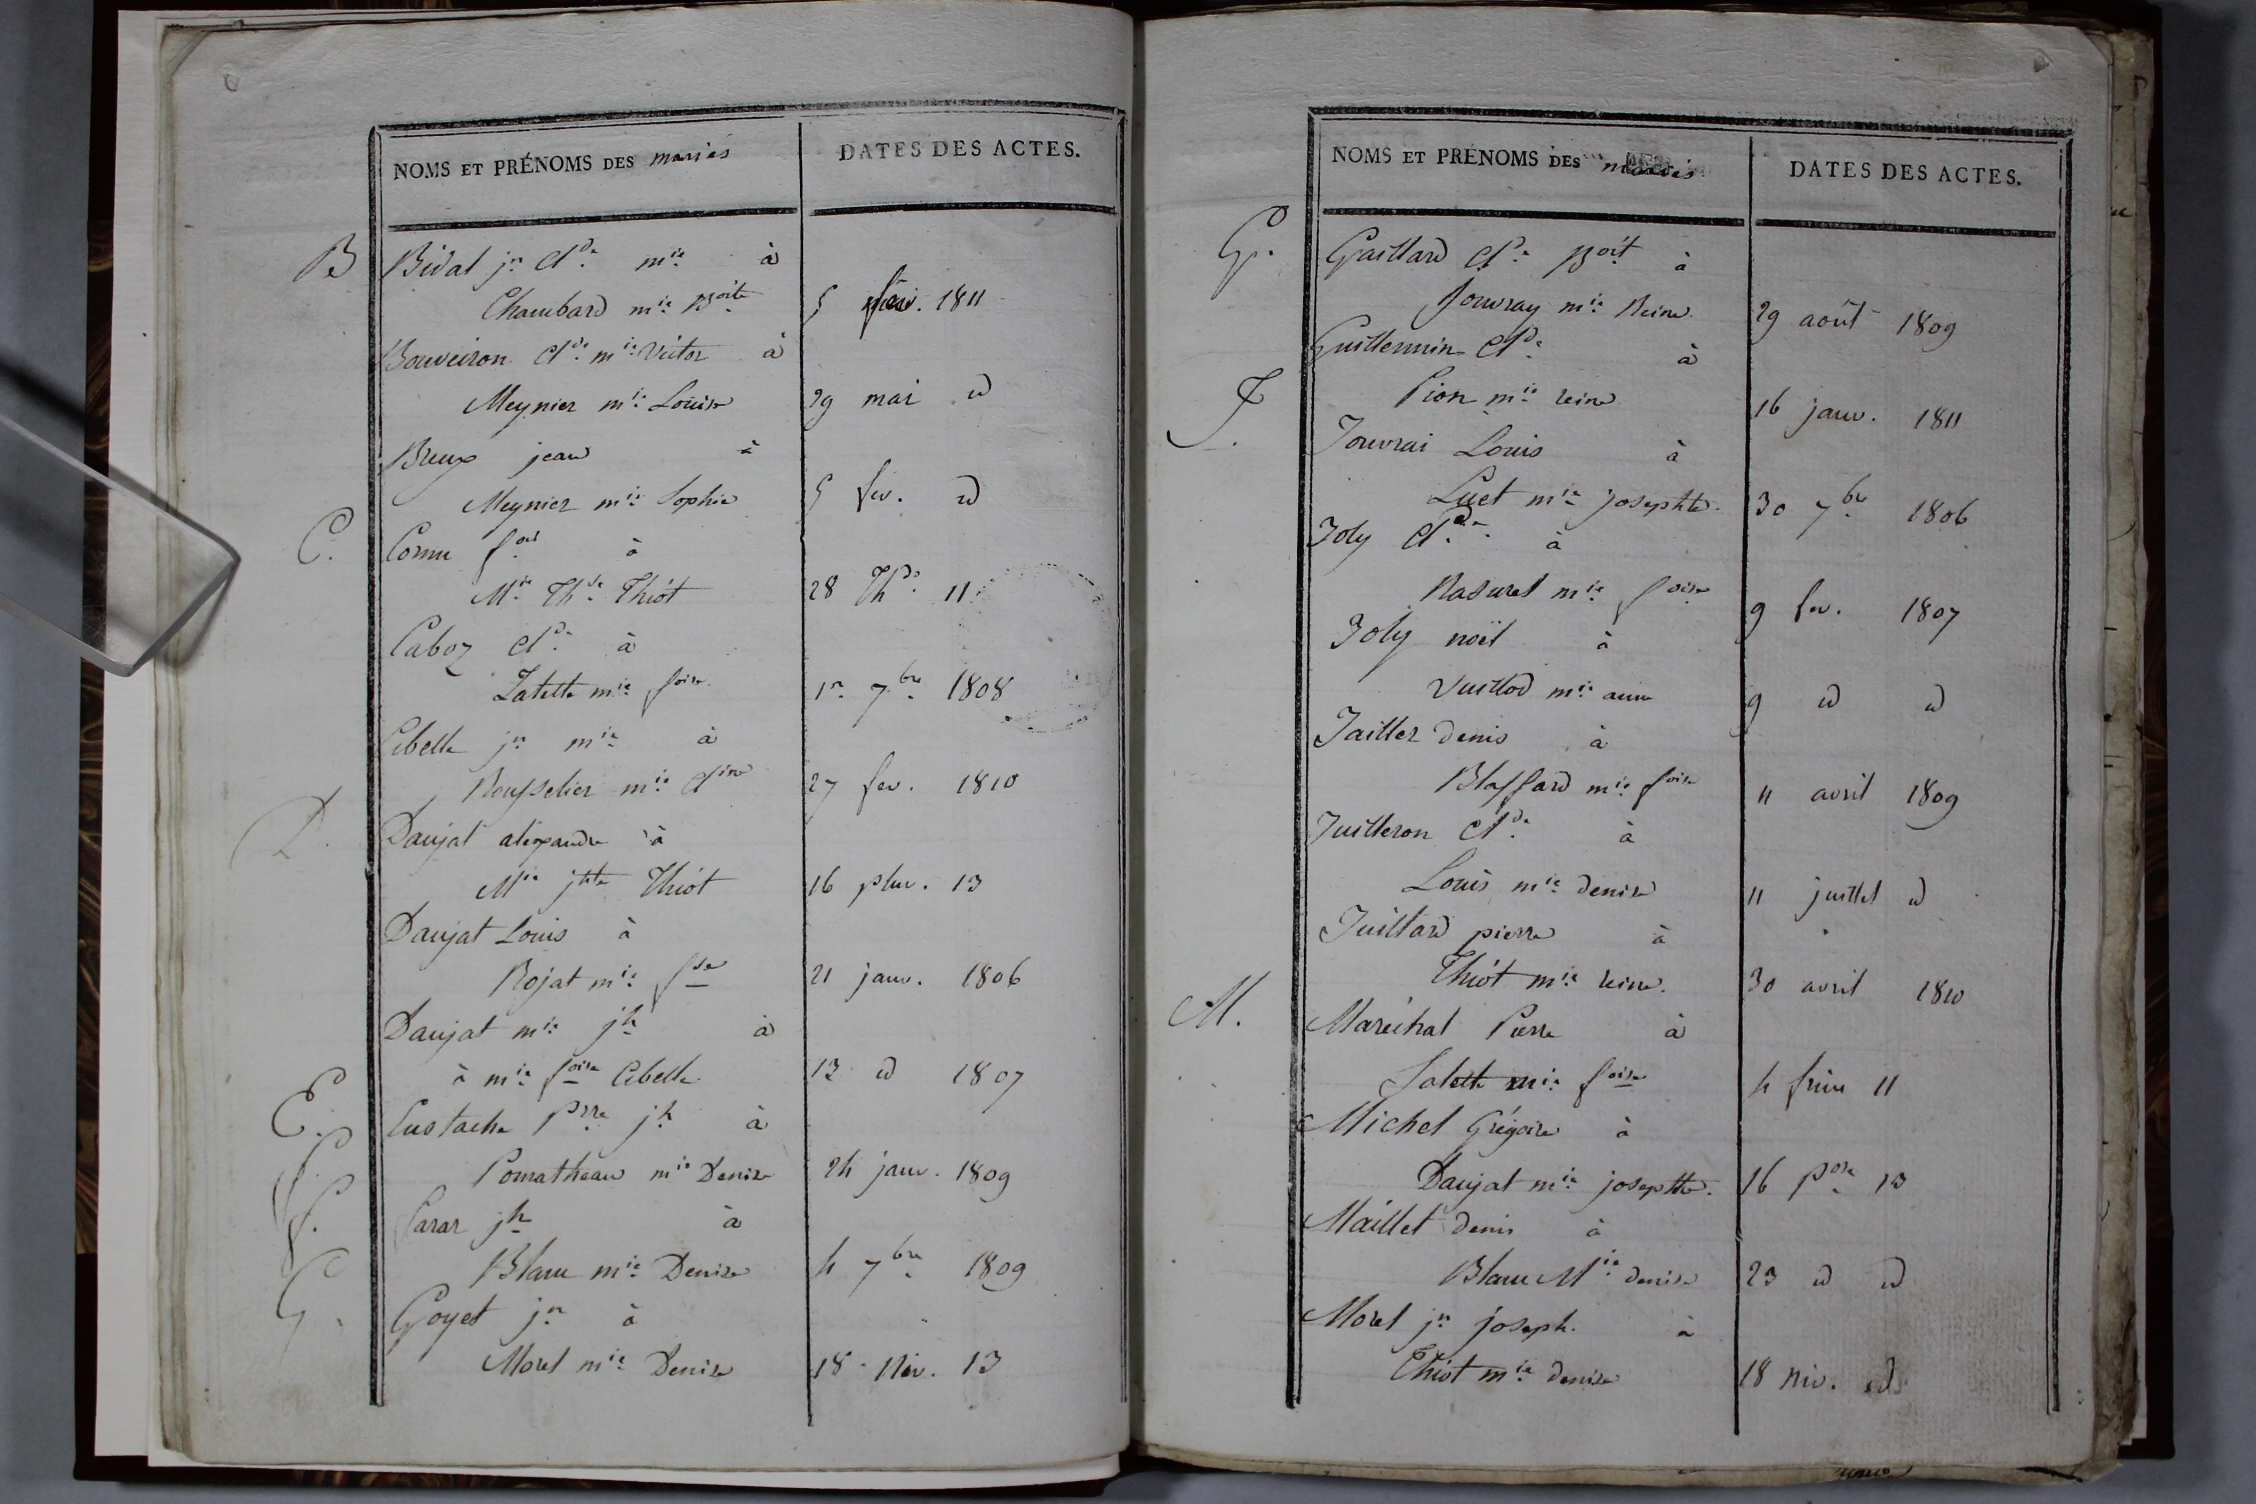 NOMS ET PRÉNOMS DES mariés DATES DES ACTES.
B Bidal jn Clde mie à
Chambard mie Boite 5 fév. 1811
Bouveiron Clde mie Victor à
Meynier mie Louise 29 mai id
Breux jean à
Meynier mie Sophie 5 fev. id
C. Cornu fois à
Mie Thse Thiot 28 Thor 11
Caboz Clde à
Jalette mie foise 1er 7bre 1808
Cibelle jn mie à
Rousselier mie Cline 27 fev. 1810
D. Daujat alexandre à
Mie jhte Thiot 16 pluv. 13
Daujat Louis à
Rojat mie fse 21 janv. 1806
Daujat mie jh à
à mie foise Cibelle 13 id 1807
E. Eustache Prre jh à
Pomatheau mie Denise 24 janv. 1809
f. farar jh à
Blanc mie Denise 4 7bre 1809
G. Goyet jn à
Morel mie Denise 18 Niv. 13
NOMS ET PRÉNOMS DES mariés DATES DES ACTES.
G. Gaillard Clde Boit à
Jouvray mie Reine 29 août 1809
Guillermin Clde à
Pion mie reine 16 janv. 1811
J. Jouvrai Louis à
Luet mie josephte. 30 7bre 1806
Joly Clde à
Rasurel mie foise 9 fev. 1807
Joly noël à
Vuillod mie anne 9 id id
Jailler denis à
Blaffard mie foise 11 avril 1809
Juilleron Clde à
Louis mie denise 11 juillet id
Juillard pierre à
Thiot mie reine. 30 avril 1810
M. Maréchal Pierre à
Jalette mie foise 4 frim 11
Michel Grégoire à
Daujat mie josephte. 16 13
Maillet denis à
Blanc Mie denise 23 id id
Morel jn joseph. à
Thiot mie denise 18 niv. id